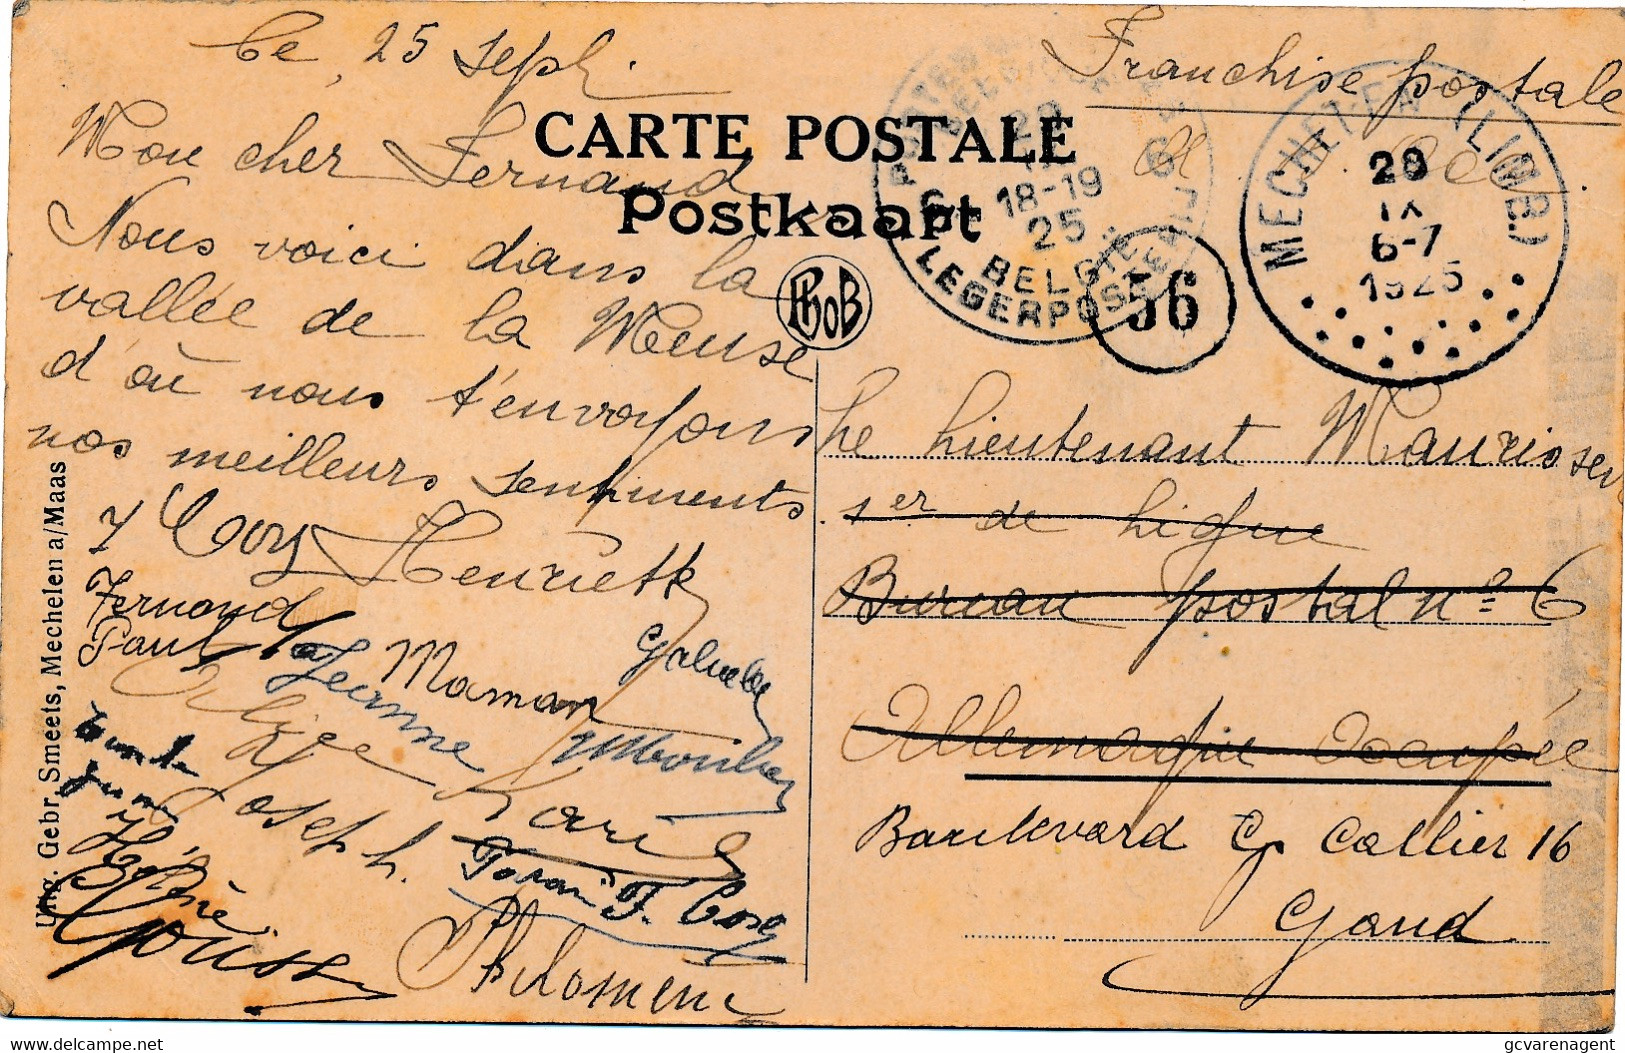 Ce, 25 Sept.
Franchise postale
CARTE POSTALE
Postkaart
Mon cher Fernand
Nous voici dans la
vallée de la Meuse
d'où nous t'envoyons
nos meilleurs sentiments
Henriette
Fernand
Paul
Jeanne
Maman
Joseph.
Marie
F.
Philomène
PhoB
18-19
25
BELGIE
LEGERPOSTERIJ
6
56
MECHELEN (LIMB.)
28
IX
6-7
1925
Le Lieutenant Maurissen
1er de Ligne
Bureau postal nº 6
Allemagne Occupée
Boulevard G Callier 16
Gand
Uitg. Gebr. Smeets, Mechelen a/Maas
delcampe.net
gcvarenagent